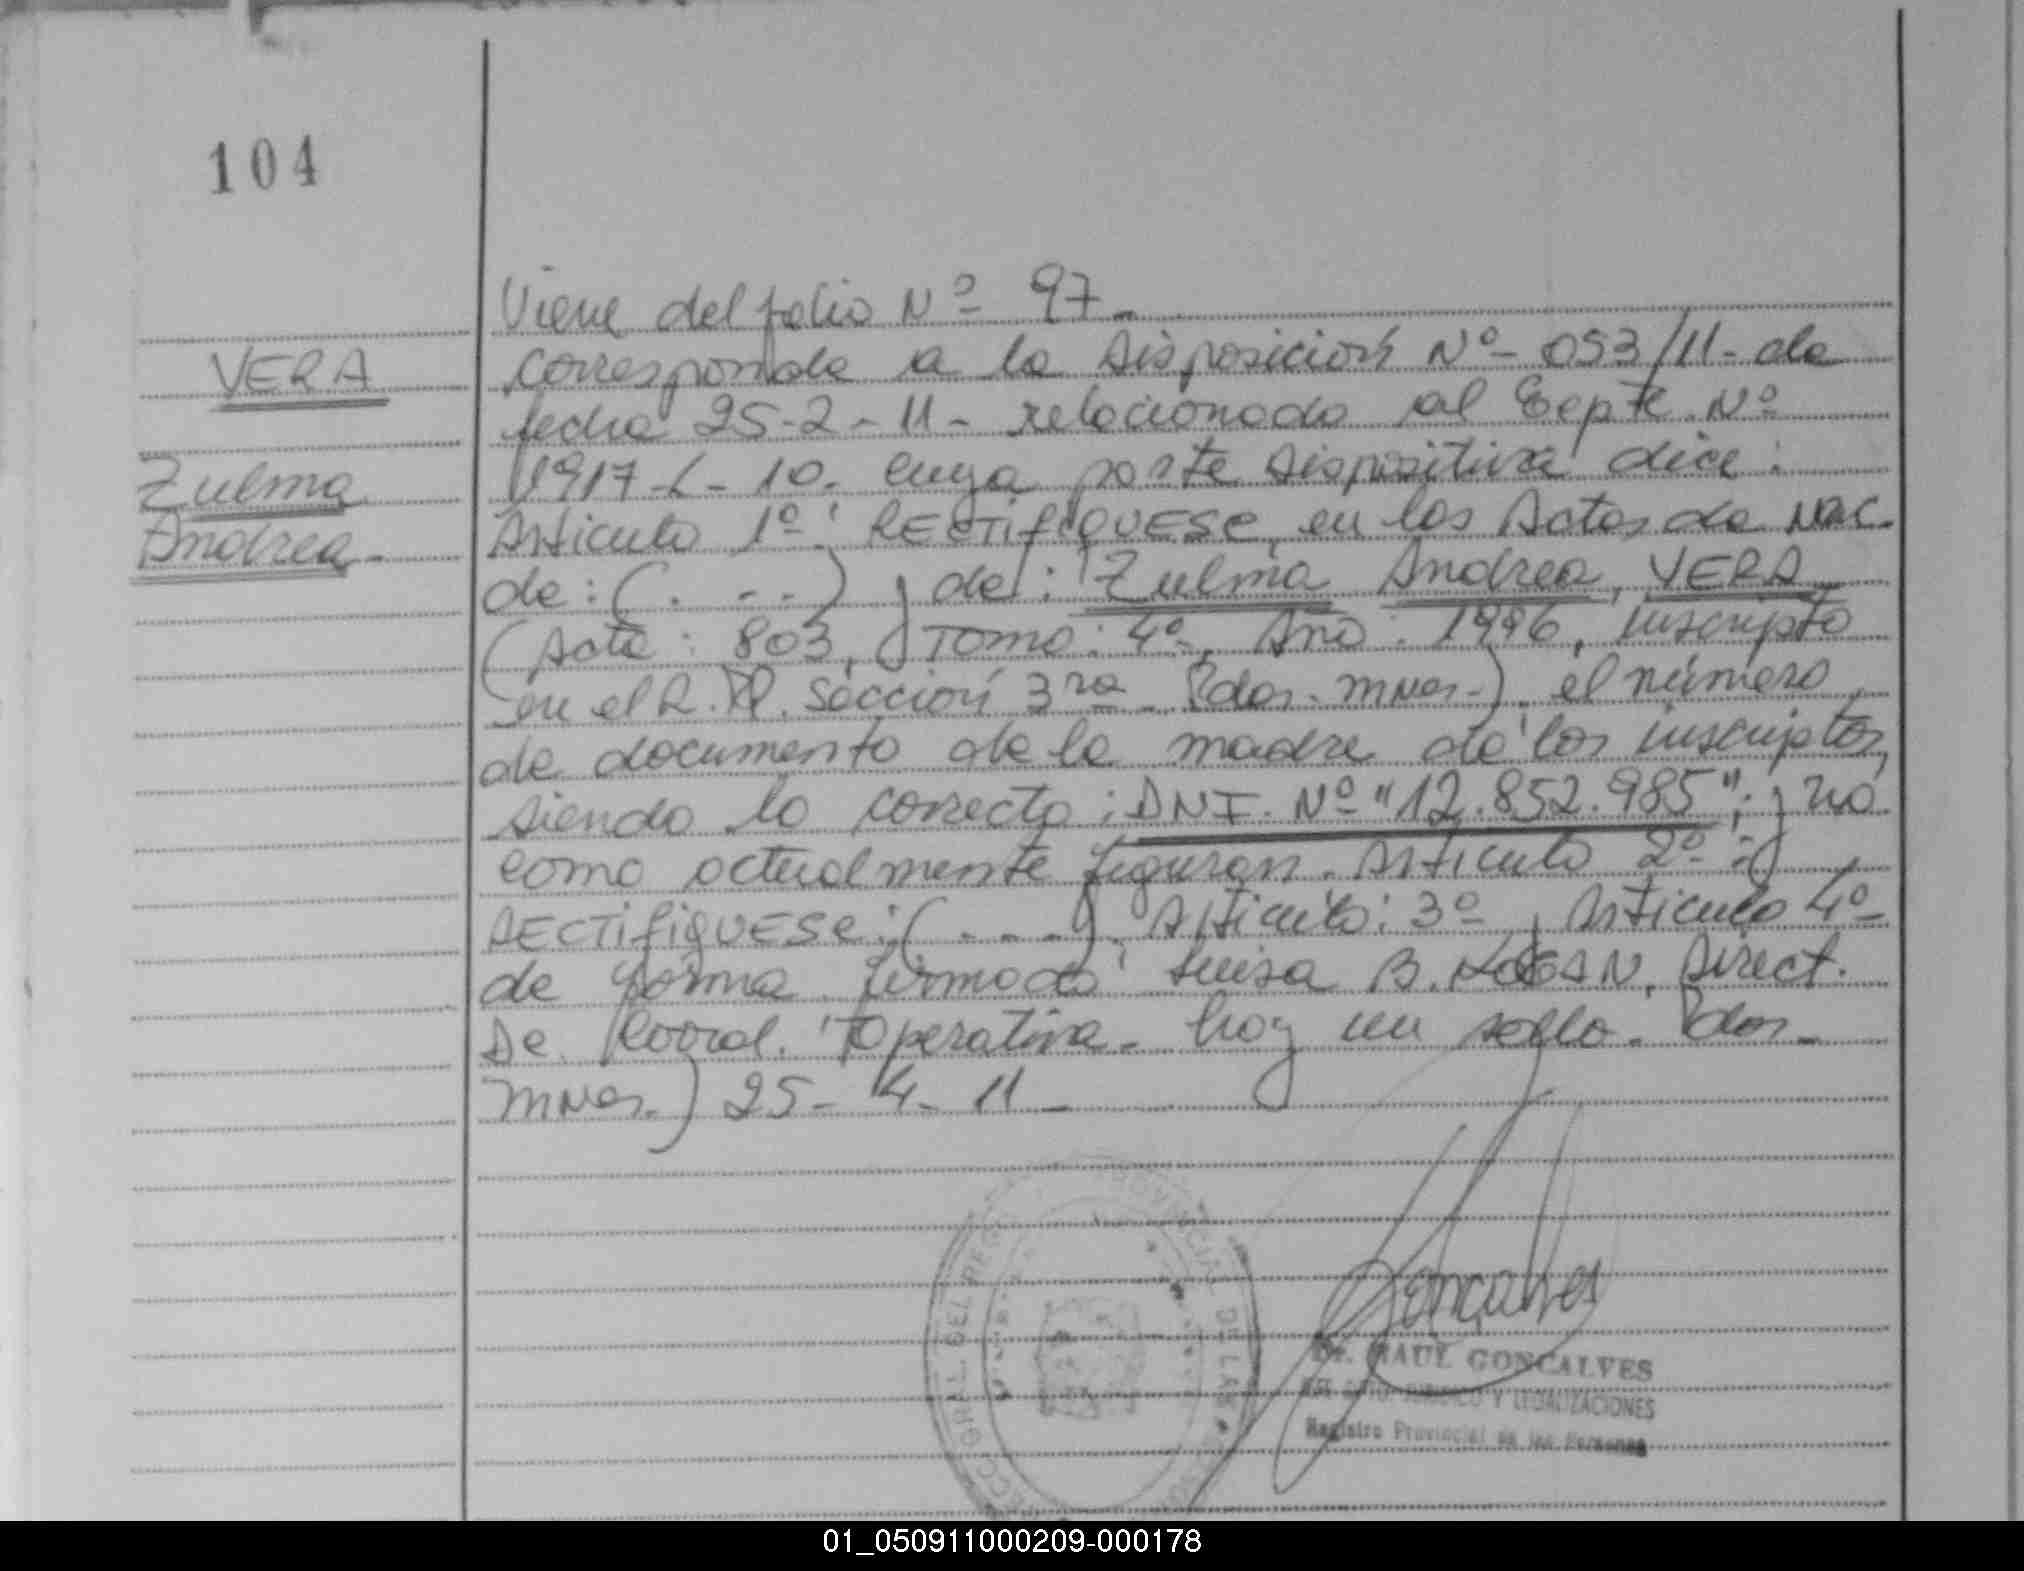 104
VERA
Zulma
Andrea-
Viene del folio Nº 97-
corresponde a la Disposición Nº- 053/11- de
fecha 25-2-11- relacionado al Expte Nº
1917-L-10. cuya parte dispositiva dice:
Articulo 1º: RECTIFIQUESE, en las Actas de Nac.
de: (. - -) y de: Zulma Andrea, VERA
(Acta: 803, Tomo: 4º, Año: 1996, inscripta
en el R.P. Sección 3ra - Pdas. Mnes.-), el número
de documento de la madre de los inscriptos,
siendo lo correcto: DNI. Nº "12.852.985"; y no
como actualmente figuran. Articulo 2º:
RECTIFIQUESE: (. - - -). Articulo: 3º y Articulo 4º
de forma firmado: Luisa B. Direct.
De Coord. Operativa- hay un sello. Pdas-
Mnes.) 25-4-11-
PROVINCIAL DE LAS
GRAL. DEL REG
Gonçalves
Dr. RAUL GONCALVES
JURIDICO Y LEGALIZACIONES
Registro Provincial de las Personas
01_050911000209-000178